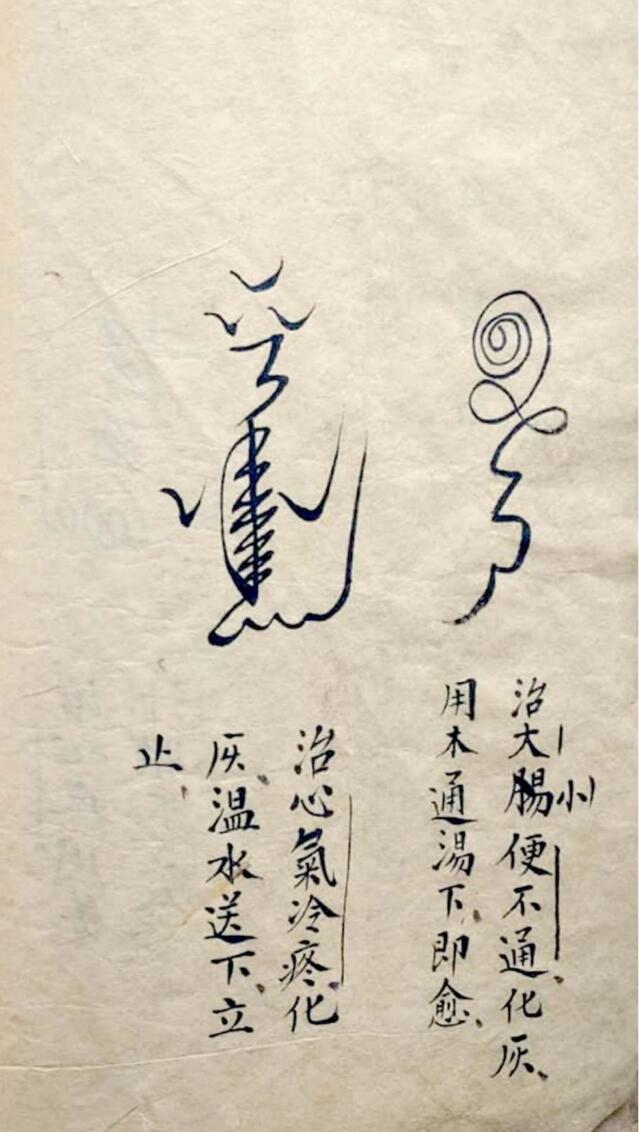 治大小腸便不通化灰、
用木通湯下、即愈、
治心氣冷疼、化
灰、溫水送下、立
止、